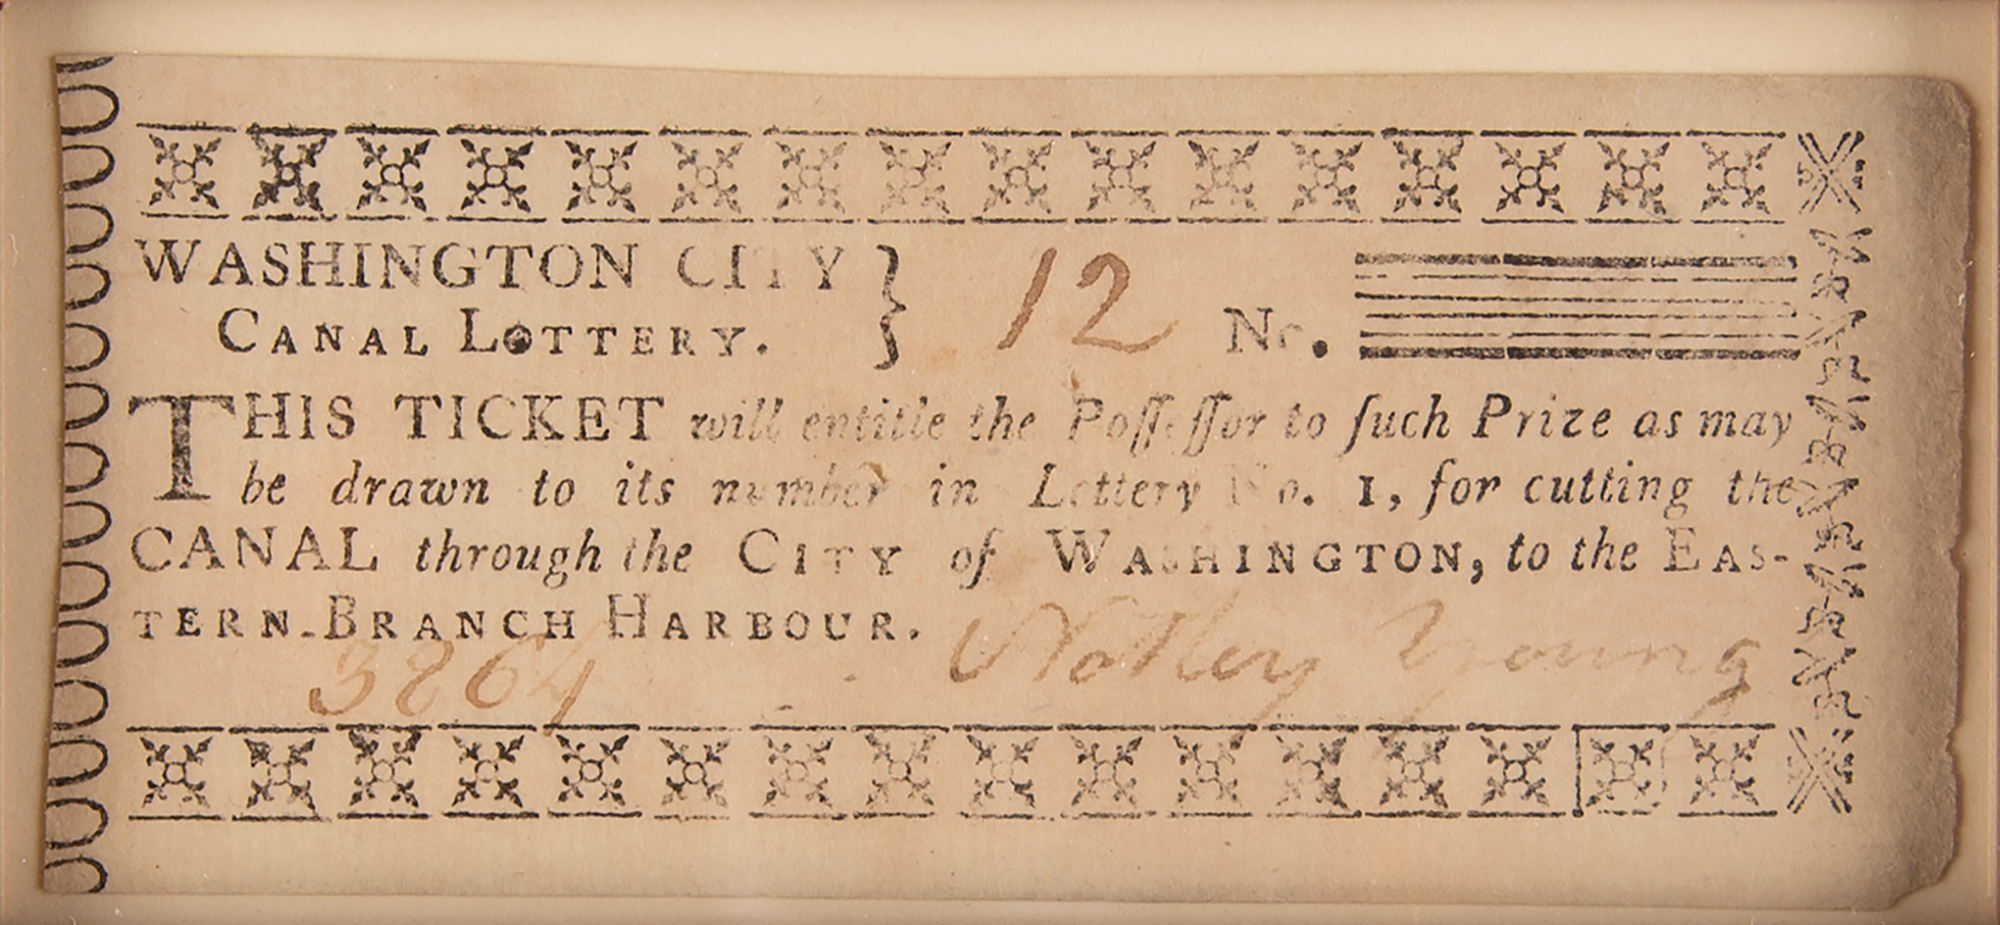 WASHINGTON CITY } 12 No.
CANAL LOTTERY.
THIS TICKET will entitle the Poſſeſſor to ſuch Prize as may
be drawn to its number in Lottery No. 1, for cutting the
CANAL through the CITY of WASHINGTON, to the EAS-
TERN-BRANCH HARBOUR.
3864 Notley Young